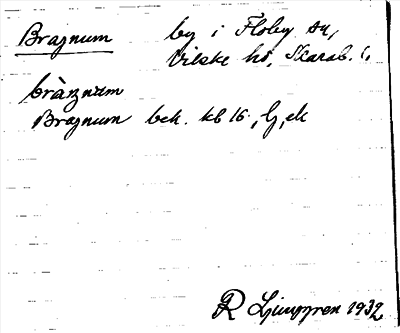 Brajnum by i Floby sn,
Vilske hd, Skarab. l,
bràznum
Brajnum bek. kb 16
R Ljunggren 1932